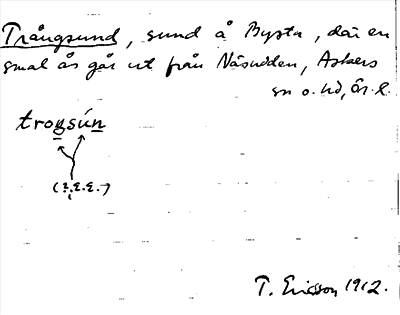 Trångsund, sund å Bysta, där en
smal ås går ut från Näsudden, Askers
sn o. hd, Ör. l.
trogsún
(?, E. E.)
T. Ericsson 1912.